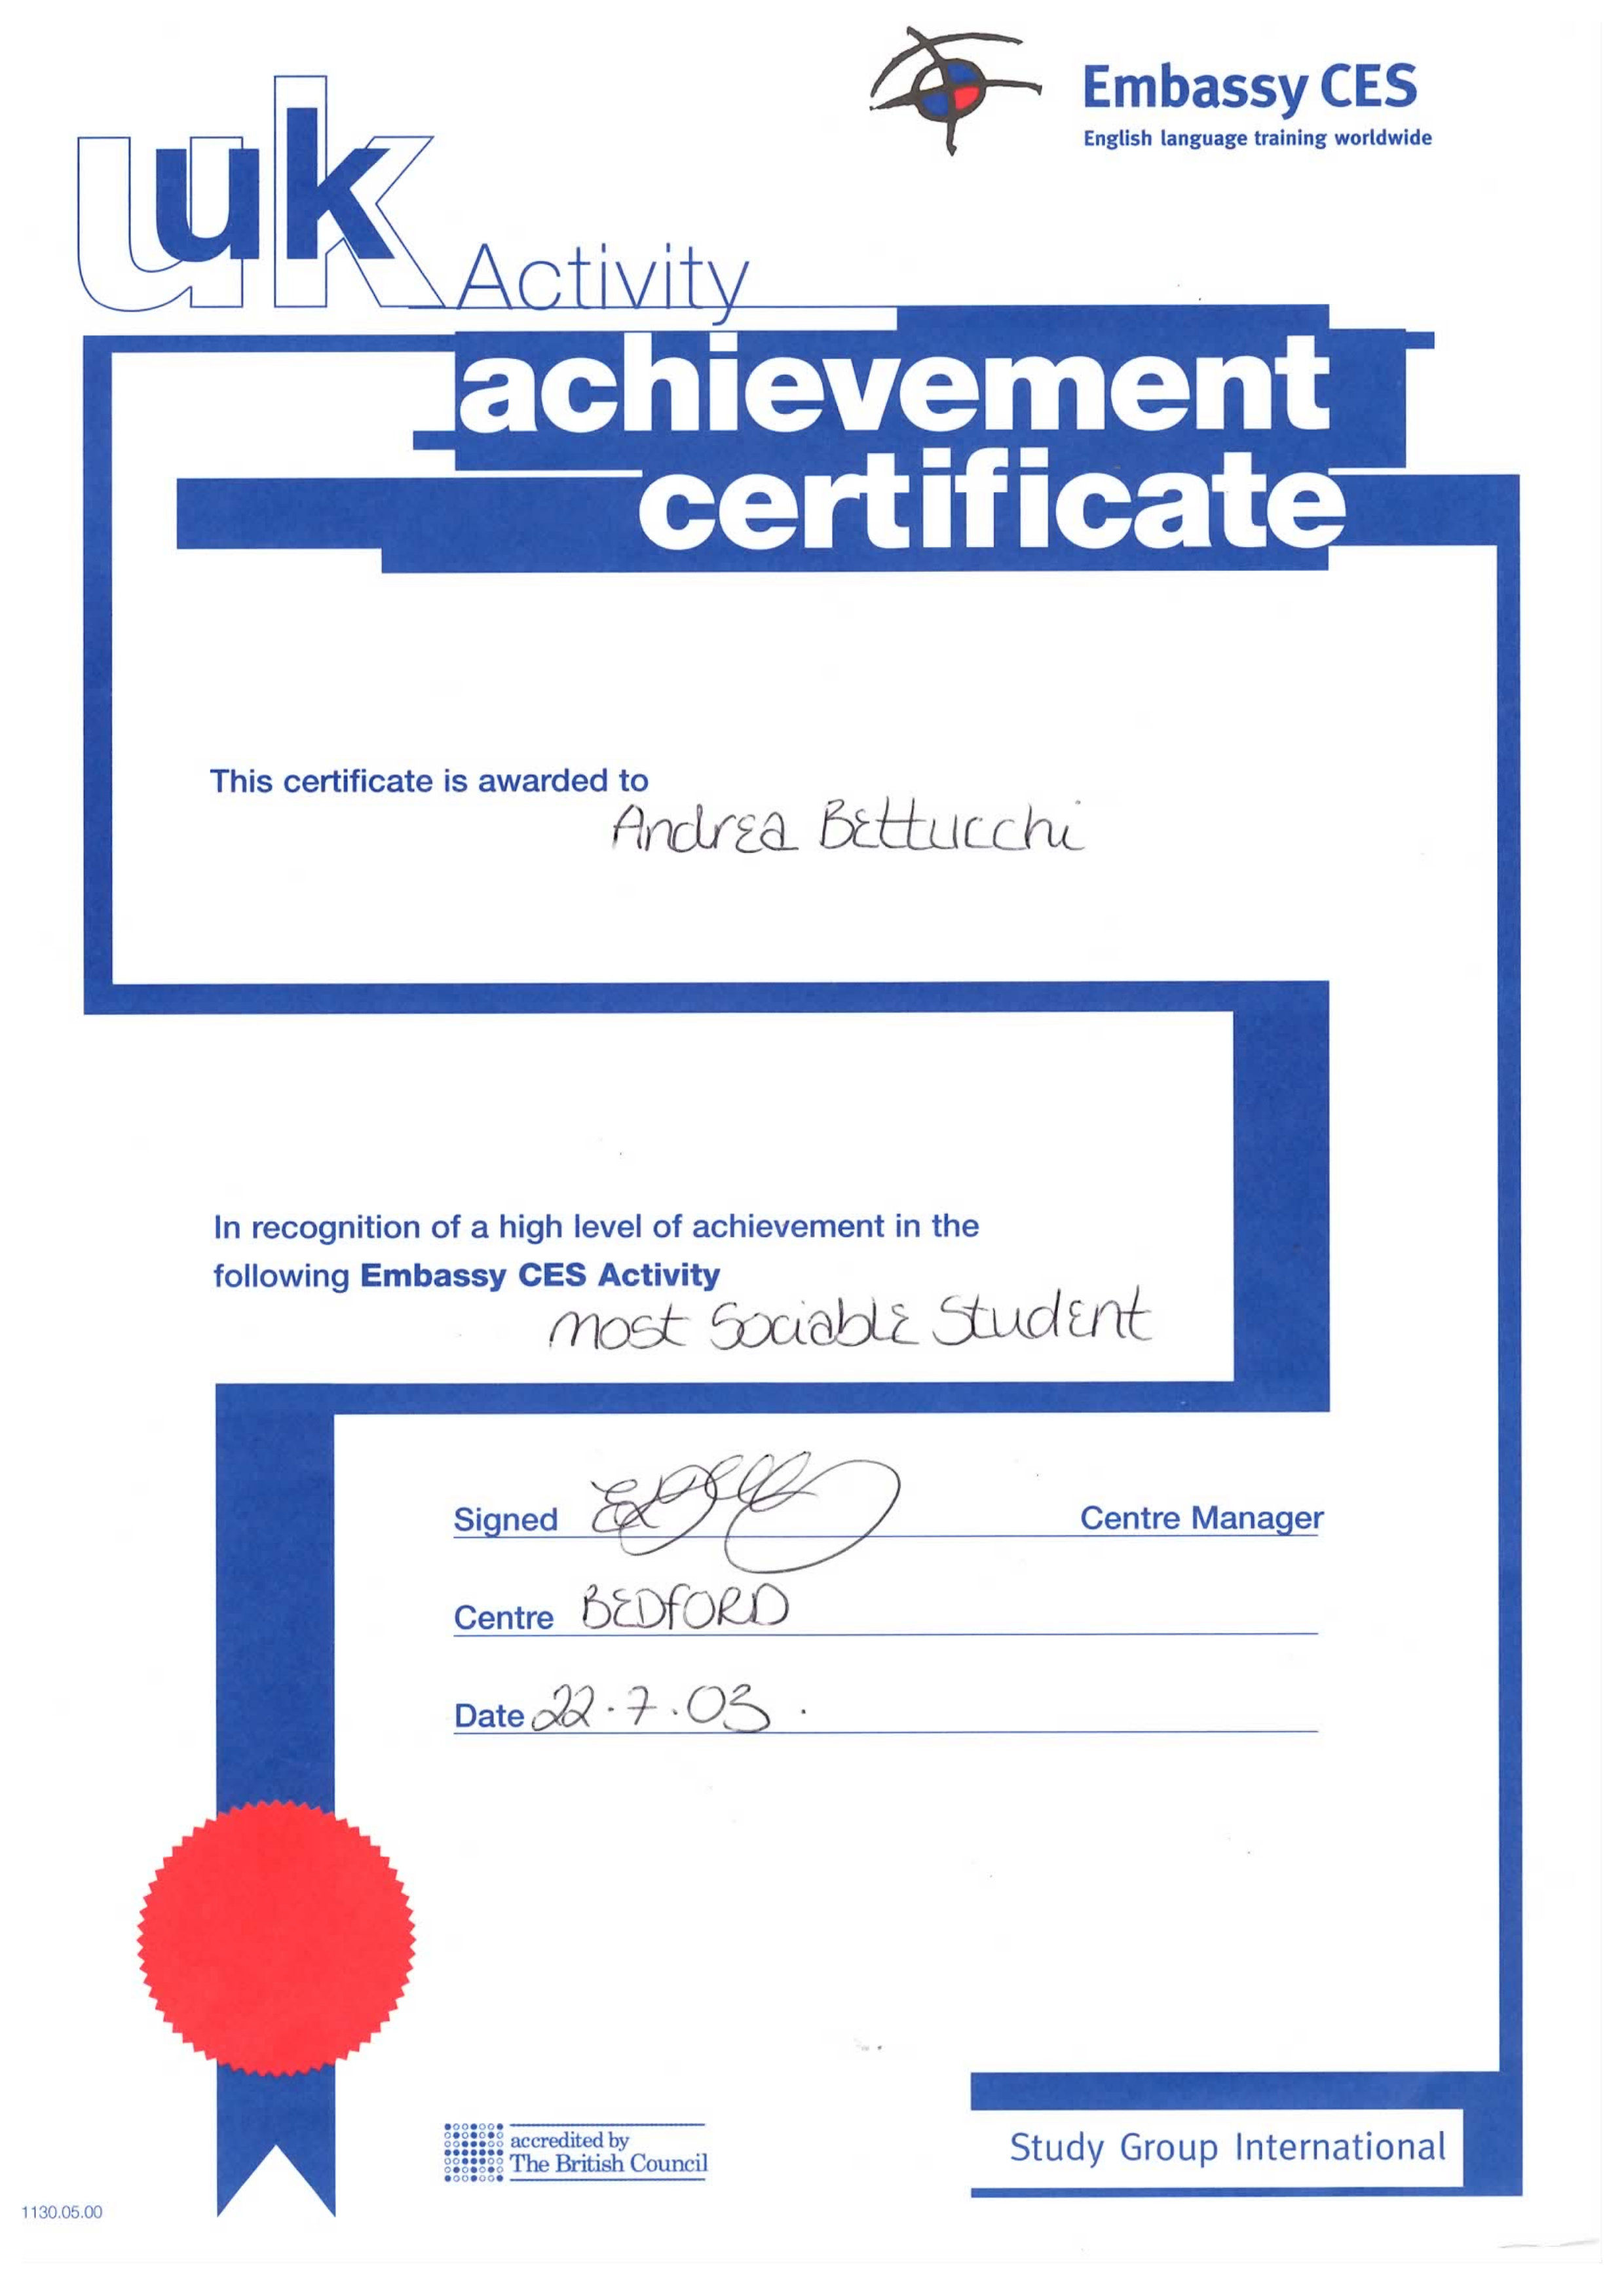 Embassy CES
English language training worldwide
uk
Activity
achievement
certificate
This certificate is awarded to
Andrea Bettucchi
In recognition of a high level of achievement in the
following Embassy CES Activity
most Sociable Student
Signed
Centre Manager
Centre BEDFORD
Date 22.7.03.
accredited by
The British Council
Study Group International
1130.05.00